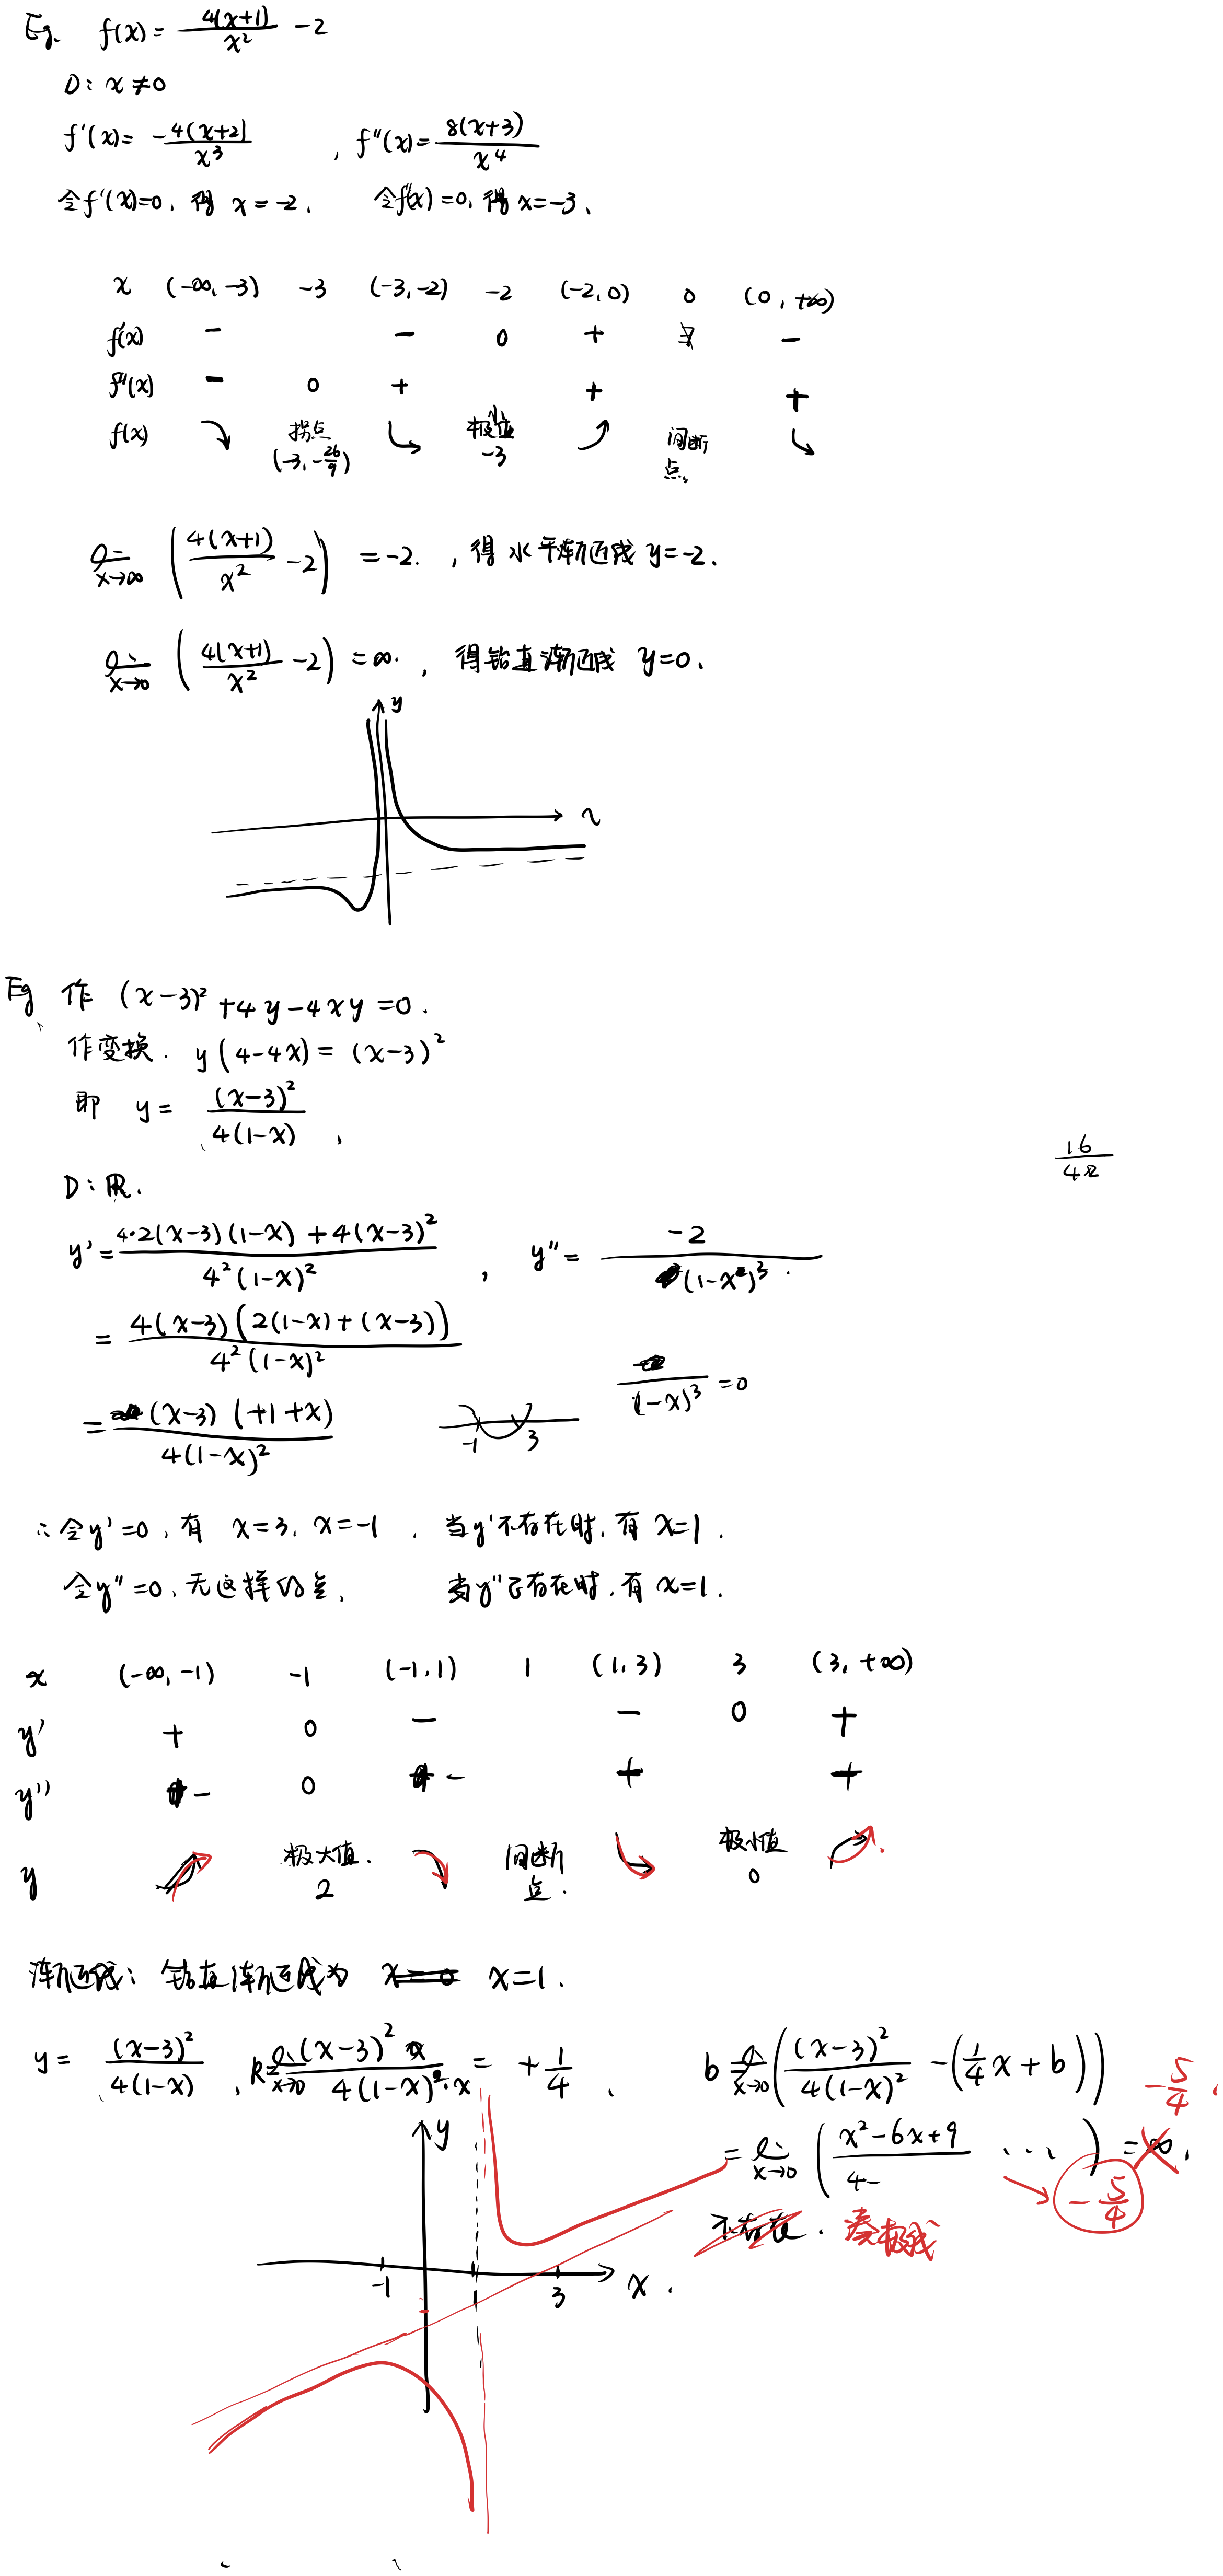 Eg. f(x) = 4(x+1)/x² -2
D: x≠0
f'(x) = -4(x+2)/x³ , f''(x) = 8(x+3)/x⁴
令f'(x)=0, 得 x=-2, 令f''(x)=0, 得 x=-3.
x (-∞,-3) -3 (-3,-2) -2 (-2,0) 0 (0,+∞)
f'(x) - - 0 + ∄ -
f''(x) - 0 + + +
f(x) 拐点 (-3,-26/9) 极小值 -3 间断点.
lim x→∞ (4(x+1)/x² -2) = -2. , 得水平渐近线 y=-2.
lim x→0 (4(x+1)/x² -2) = ∞. , 得铅直渐近线 y=0.
y
x
Eg. 作 (x-3)²+4y-4xy=0.
作变换. y(4-4x) = (x-3)²
即 y = (x-3)²/4(1-x) ,
16/42
D: R.
y' = 4·2(x-3)(1-x)+4(x-3)²/4²(1-x)² , y'' = -2/(1-x²)³.
= 4(x-3)(2(1-x)+(x-3))/4²(1-x)²
/(1-x)³ =0
= (x-3)(+1+x)/4(1-x)² -1 3
∴ 令y'=0, 有 x=3, x=-1 , 当y'不存在时, 有 x=1.
令y''=0, 无这样的点, 当y''不存在时, 有 x=1.
x (-∞,-1) -1 (-1,1) 1 (1,3) 3 (3,+∞)
y' + 0 - - 0 +
y'' - 0 - + +
y 极大值. 2 间断点. 极小值 0
渐近线: 铅直渐近线为 x=0 x=1.
y = (x-3)²/4(1-x) , k= lim x→0 (x-3)²/4(1-x)²·x = +1/4 , b lim x→0 ((x-3)²/4(1-x)² -(1/4x+b)) -5/4
= lim x→0 (x²-6x+9/4- ...) = ∞. -5/4
不存在.
y
-1 1 3 x.